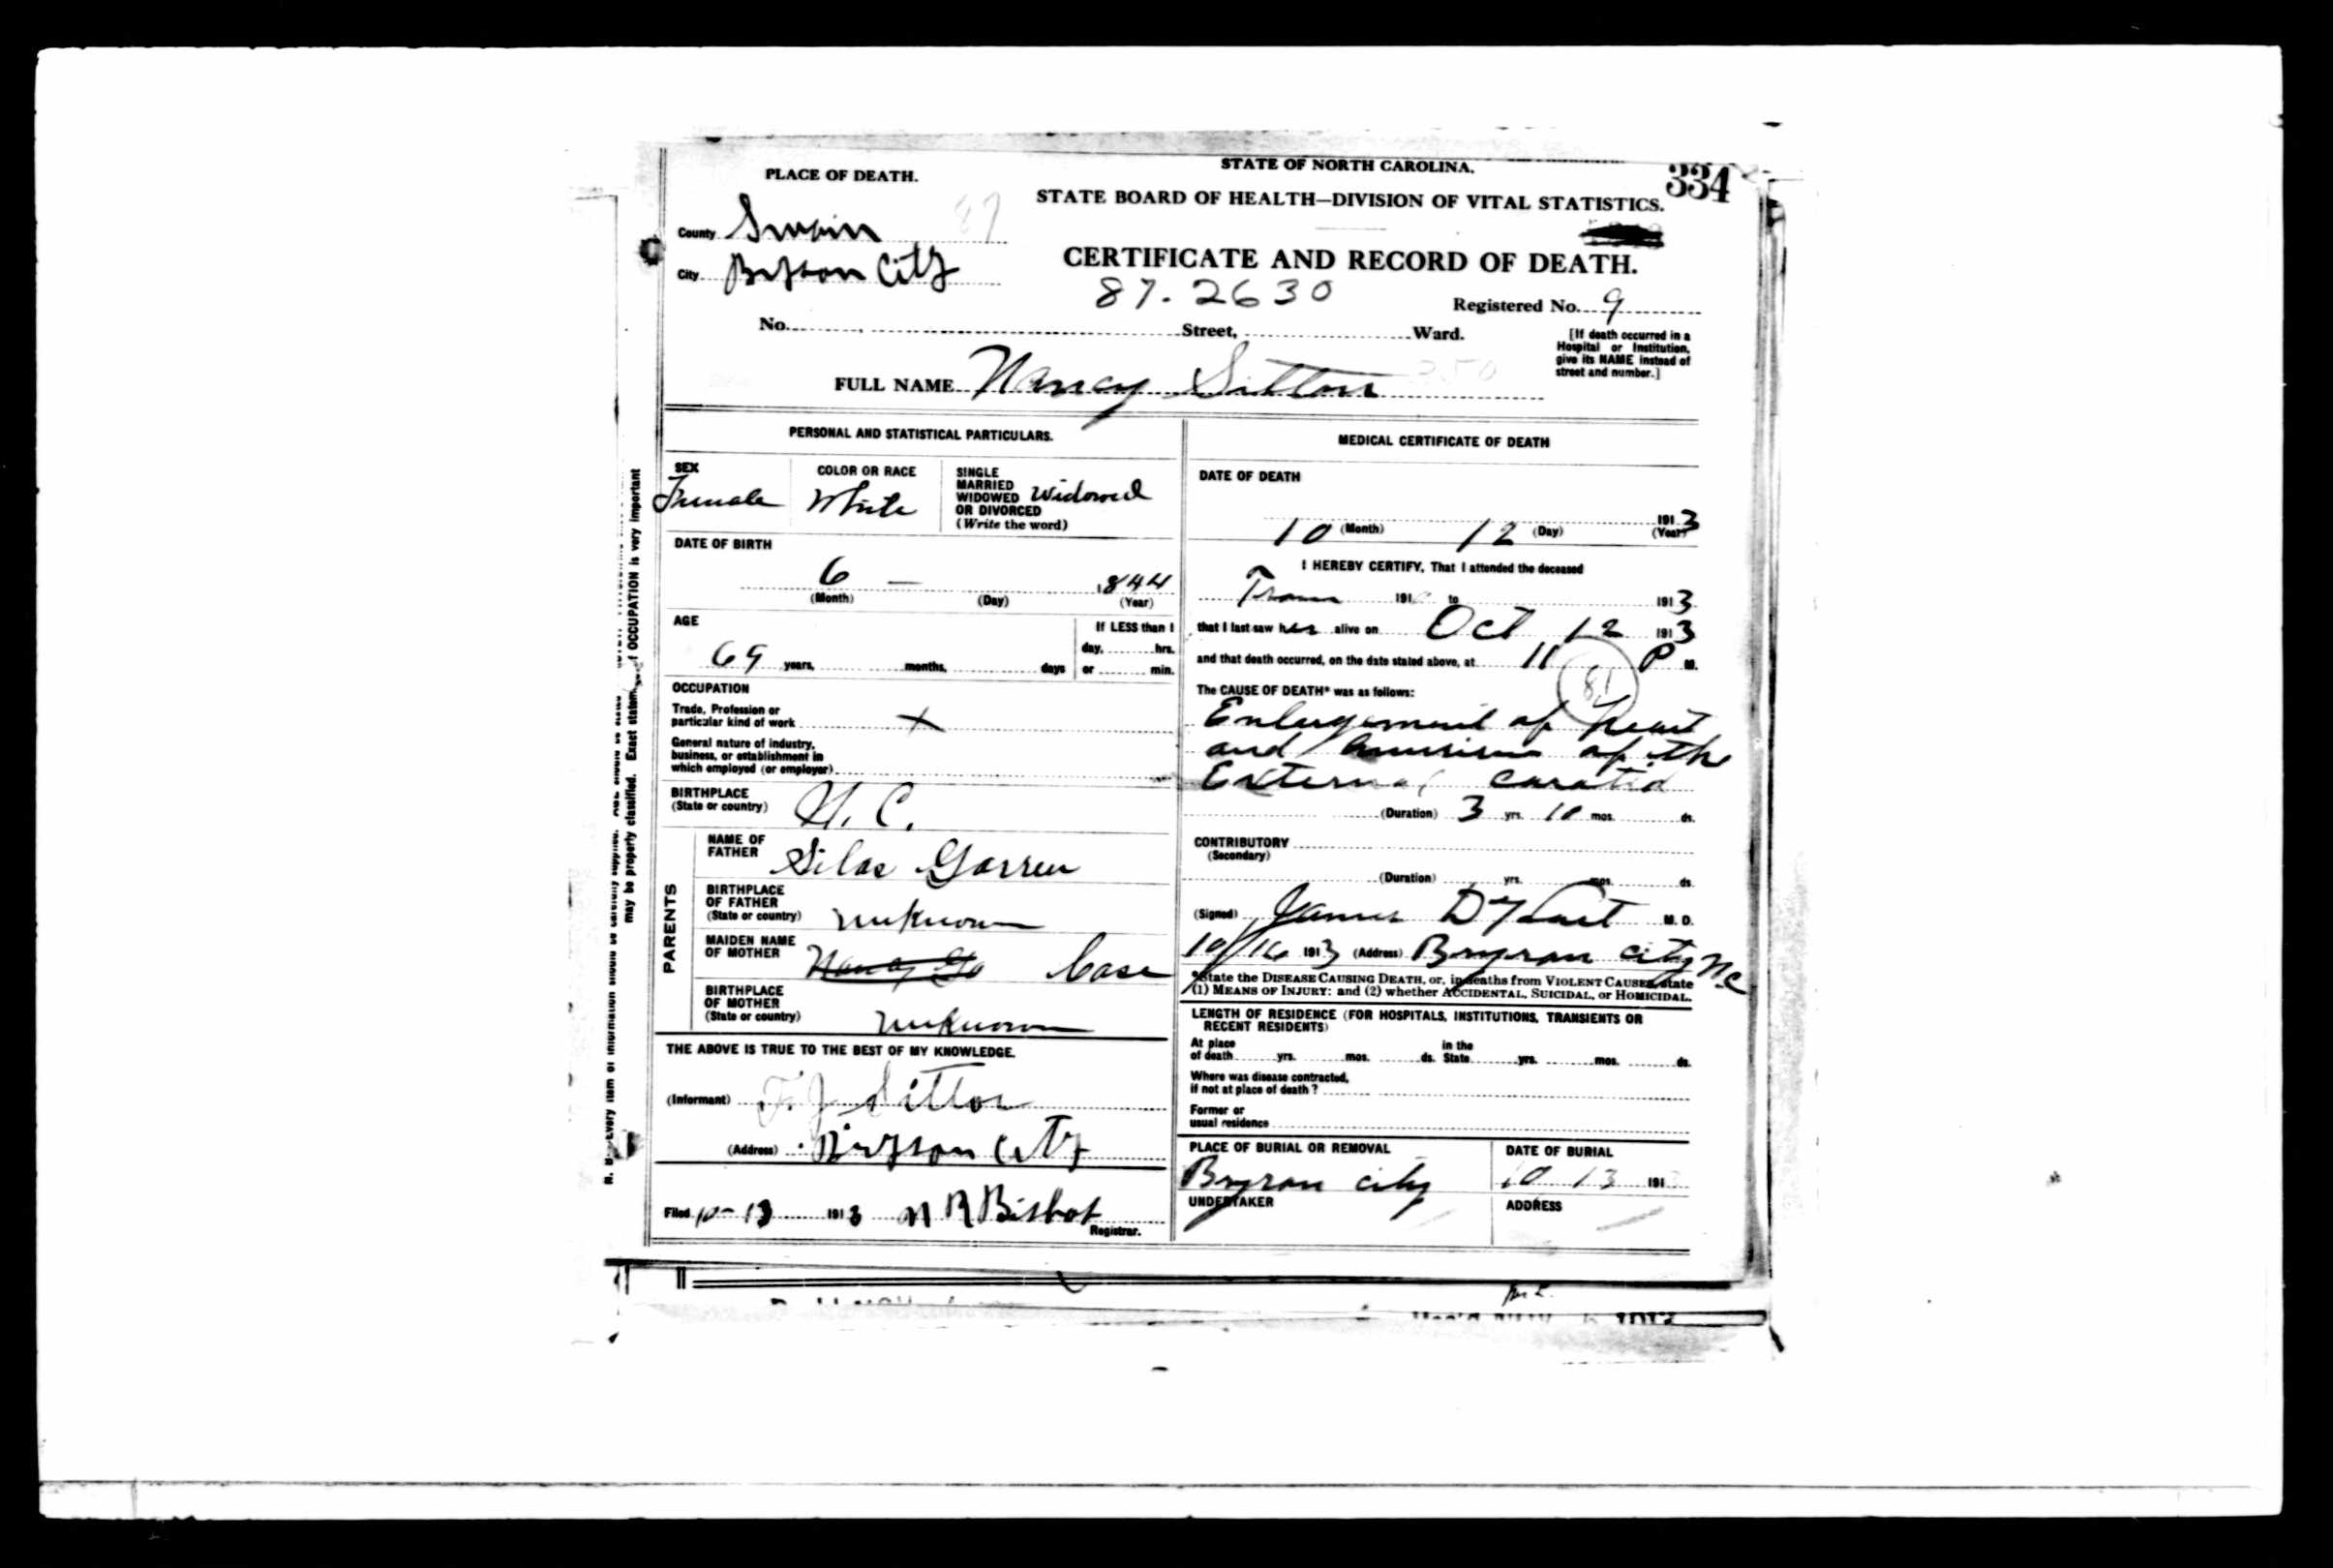 STATE OF NORTH CAROLINA.
334
PLACE OF DEATH.
STATE BOARD OF HEALTH—DIVISION OF VITAL STATISTICS.
County Swain 87
CERTIFICATE AND RECORD OF DEATH.
City Bryson City
87. 2630
Registered No. 9
No. Street, Ward.
[If death occurred in a
Hospital or Institution,
give its NAME instead of
street and number.]
FULL NAME Nancy Sitton
PERSONAL AND STATISTICAL PARTICULARS.
SEX
Female
COLOR OR RACE
White
SINGLE
MARRIED
WIDOWED
OR DIVORCED
(Write the word)
Widowed
DATE OF BIRTH
6 — 1844
(Month) (Day) (Year)
AGE
69 years, months, days
If LESS than 1
day, hrs.
or min.
OCCUPATION
Trade, Profession or
particular kind of work x
General nature of industry,
business, or establishment in
which employed (or employer)
BIRTHPLACE
(State or country) N. C.
PARENTS
NAME OF
FATHER Silas Garren
BIRTHPLACE
OF FATHER
(State or country) unknown
MAIDEN NAME
OF MOTHER Case
BIRTHPLACE
OF MOTHER
(State or country) unknown
THE ABOVE IS TRUE TO THE BEST OF MY KNOWLEDGE.
(Informant) F. J. Sitton
(Address) Bryson City
Filed 10-13 1913 Bishop
Registrar.
MEDICAL CERTIFICATE OF DEATH
DATE OF DEATH
10 (Month) 12 (Day) 1913 (Year)
I HEREBY CERTIFY, That I attended the deceased
From 191 to 1913
that I last saw her alive on Oct 12 1913
and that death occurred, on the date stated above, at 11 P M.
81
The CAUSE OF DEATH* was as follows:
Enlargement of heart
and Anurism of the
External carotid
(Duration) 3 yrs. 10 mos. ds.
CONTRIBUTORY
(Secondary)
(Duration) yrs. mos. ds.
(Signed) James M. D.
10/16 1913 (Address) Bryson city N.C
*State the DISEASE CAUSING DEATH, or, in deaths from VIOLENT CAUSES, state
(1) MEANS OF INJURY; and (2) whether ACCIDENTAL, SUICIDAL, or HOMICIDAL.
LENGTH OF RESIDENCE (FOR HOSPITALS, INSTITUTIONS, TRANSIENTS OR
RECENT RESIDENTS)
At place
of death yrs. mos. ds.
in the
State yrs. mos. ds.
Where was disease contracted,
if not at place of death?
Former or
usual residence
PLACE OF BURIAL OR REMOVAL
Bryson city
DATE OF BURIAL
10 13 191
UNDERTAKER
ADDRESS
N. B.—Every item of information should be carefully supplied.
may be properly classified. Exact statement of OCCUPATION is very important